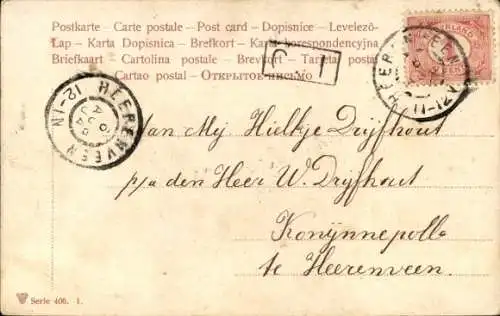 Postkarte - Carte postale - Post card - Dopisnice - Levelező-
Lap - Karta Dopisnica - Brefkort - Karta korespondencyjna
Briefkaart - Cartolina postale - Brevkort - Tarjeta postal
Cartao postal - ОТКРЫТОЕ ПИСЬМО
HEERENVEEN
6
AUG
04
12-1N
HEERENVEEN
11-12V
Aan Mej Hieltje Drijfhout
p/a den Heer W. Drijfhout
Konijnepolle
te Heerenveen.
Serie 406. 1.